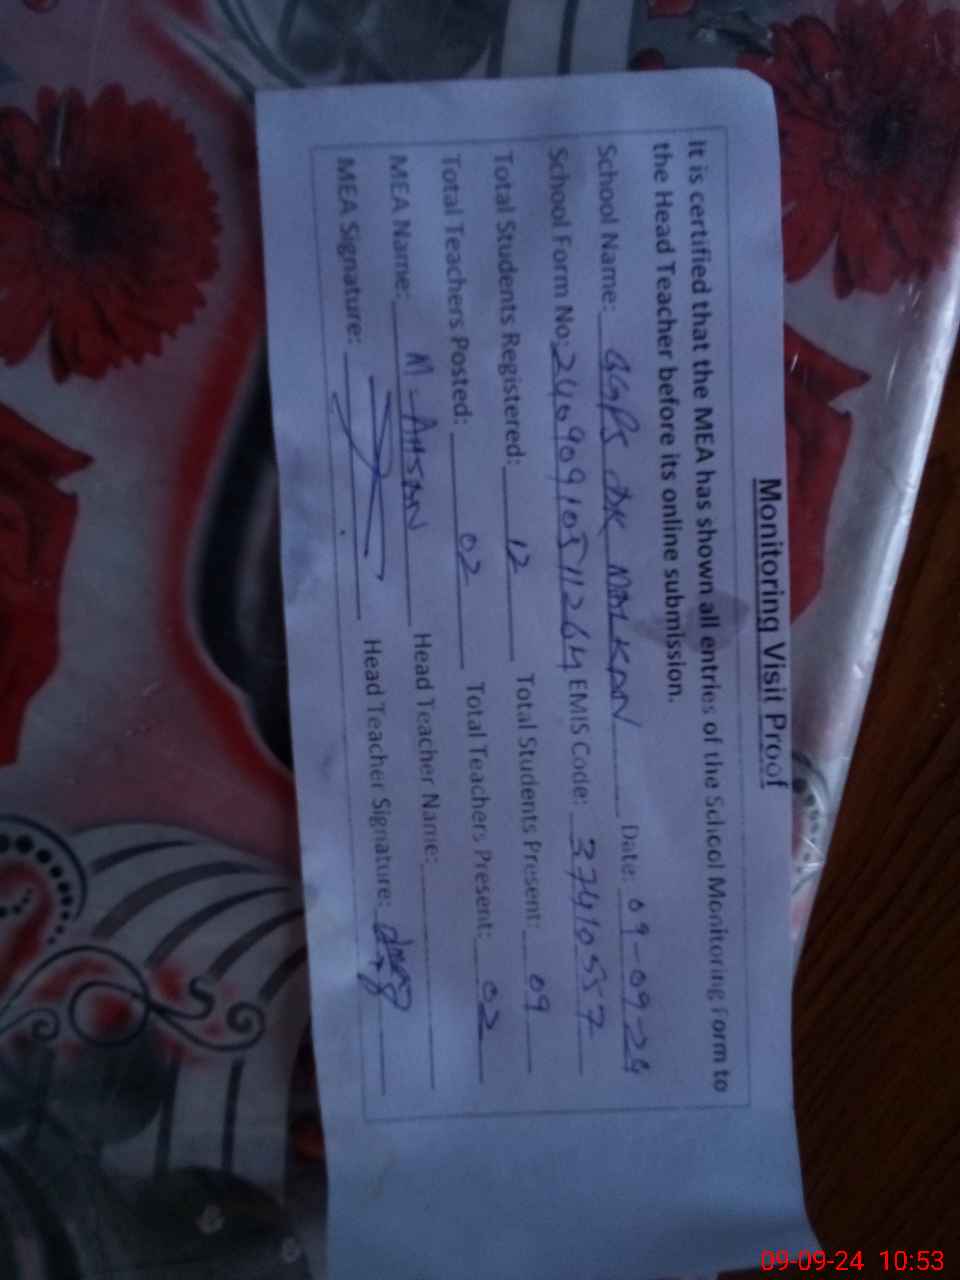 Monitoring Visit Proof
It is certified that the MEA has shown all entries of the School Monitoring Form to
the Head Teacher before its online submission.
School Name: GGPS DK MALKAN Date: 09-09-24
School Form No: 24090910511264 EMIS Code: 37410557
Total Students Registered: 12 Total Students Present: 09
Total Teachers Posted: 02 Total Teachers Present: 02
MEA Name: M-AHSAN Head Teacher Name:
MEA Signature: Head Teacher Signature:
09-09-24 10:53